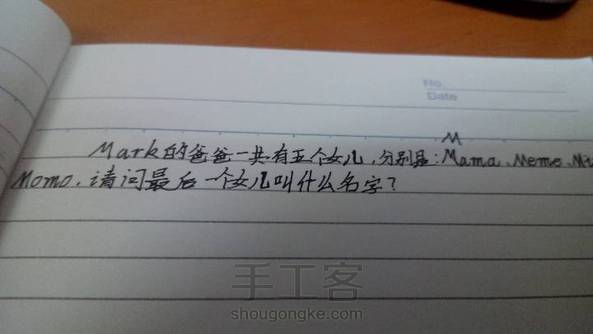 No.
Date
M
Mark的爸爸一共有五个女儿，分别是：Mama、Meme、
Momo，请问最后一个女儿叫什么名字？
手工客
shougongke.com